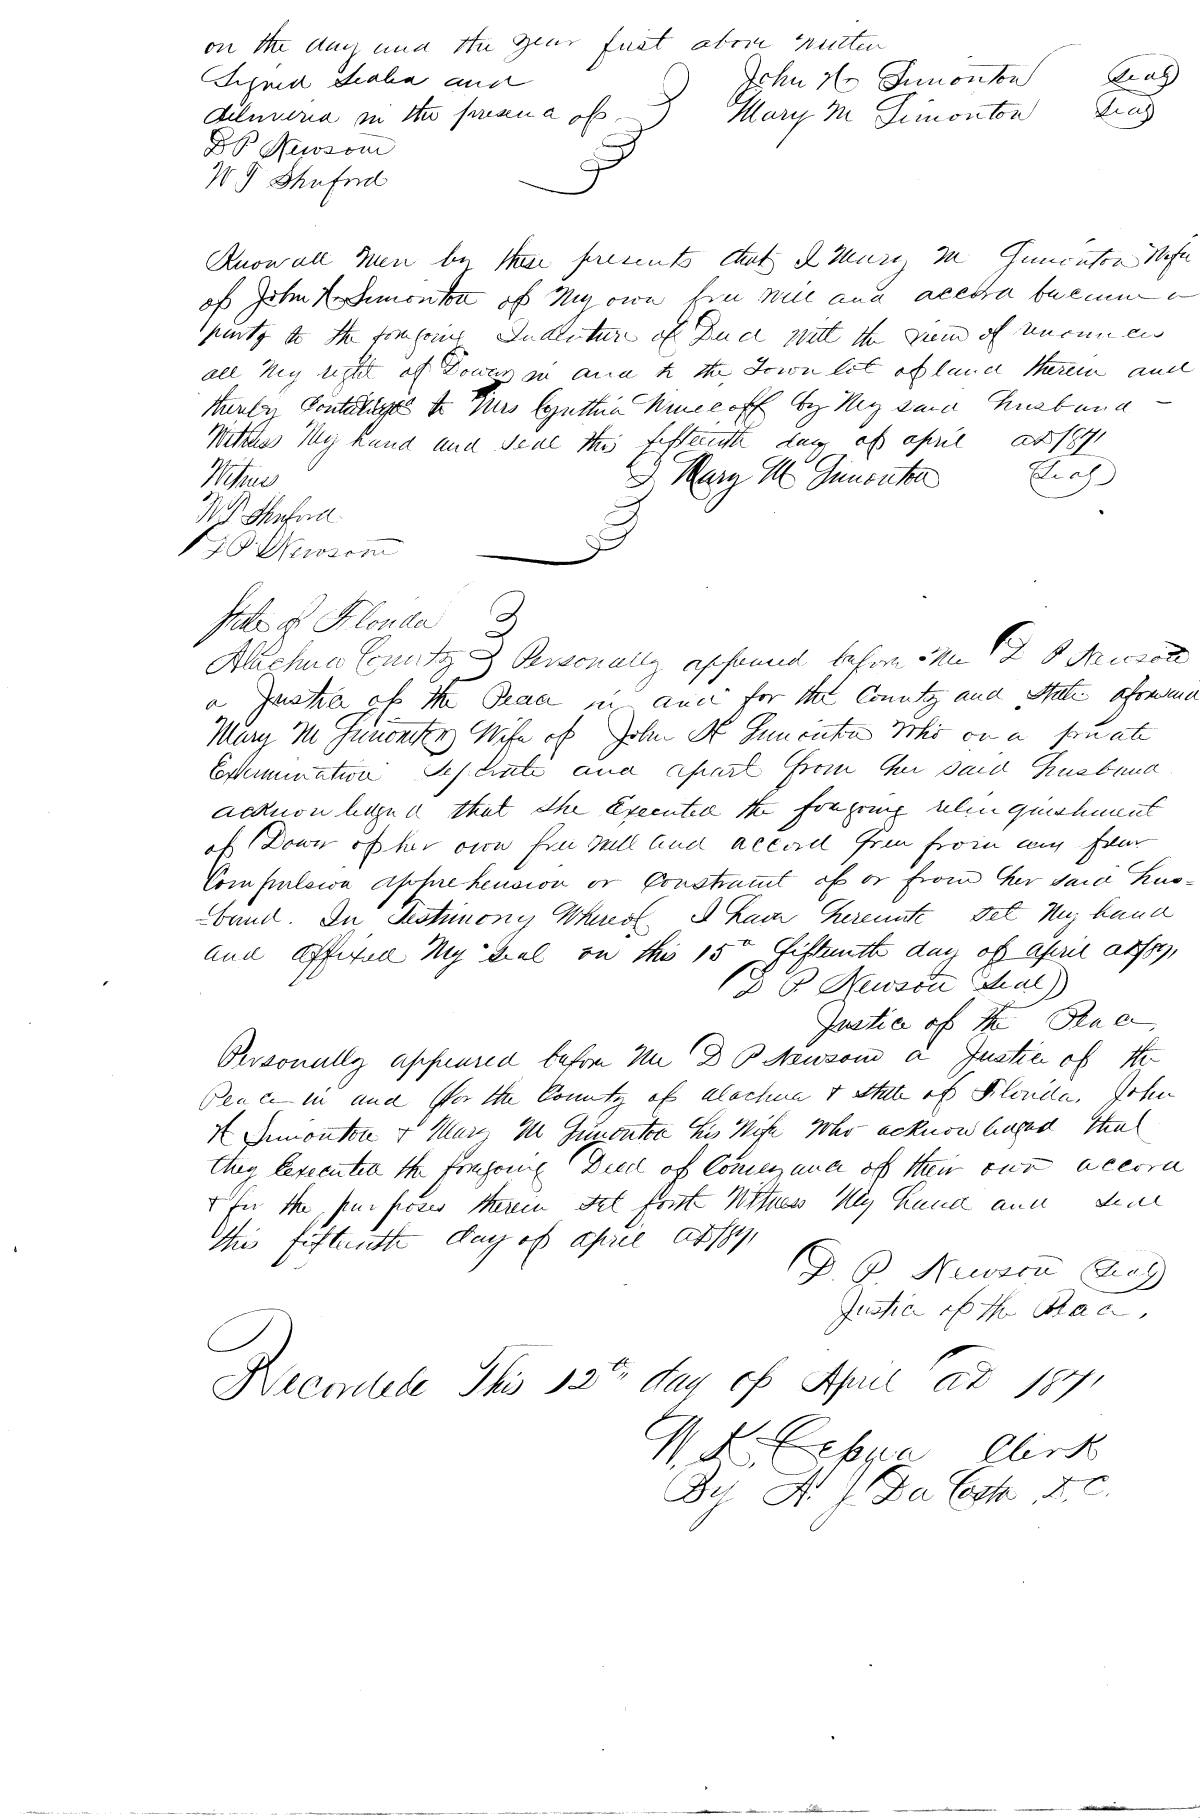 on the day and the year first above written
Signed Sealed and John H Simonton (Seal)
delivered in the presence of Mary M Simonton (Seal)
D P Newsom
W T Shuford
Know all Men by these presents that I Mary M Simonton Wife
of John H Simonton of My own free will and accord became a
party to the foregoing Indenture of Deed with the view of renounces
all My right of Dower in and to the Town lot of land therein and
thereby to Mrs Cynthia by My said Husband –
Witness My hand and seal this fifteenth day of april AD 1871
Witness Mary M Simonton (Seal)
W T Shuford
D P Newsom
State of Florida
Alachua County Personally appeared before Me D P Newsom
a Justice of the Peace in and for the County and State aforesaid
Mary M Simonton Wife of John H Simonton Who on a private
Examination Seperate and apart from her said Husband
acknowledged that She Executed the foregoing relinquishment
of Dower of her own free will and accord free from any fear
Compulsion apprehension or Constraint of or from her said hus=
=band. In Testimony Whereof I have hereunto set My hand
and affixed My seal on this 15th fifteenth day of april AD 1871,
D P Newsom (Seal)
Justice of the Peace,
Personally appeared before Me D P Newsom a Justice of the
Peace in and for the County of Alachua & State of Florida, John
H Simonton & Mary M Simonton his Wife Who acknowledged that
they Executed the foregoing Deed of Conveyance of their own accord
& for the purposes therein set forth Witness My hand and seal
this fifteenth day of april AD 1871
D. P. Newsom (Seal)
Justice of the Peace,
Recorded This 12th day of April AD 1871
W. K. Cessna Clerk
By A. J. Da Costa, D.C.